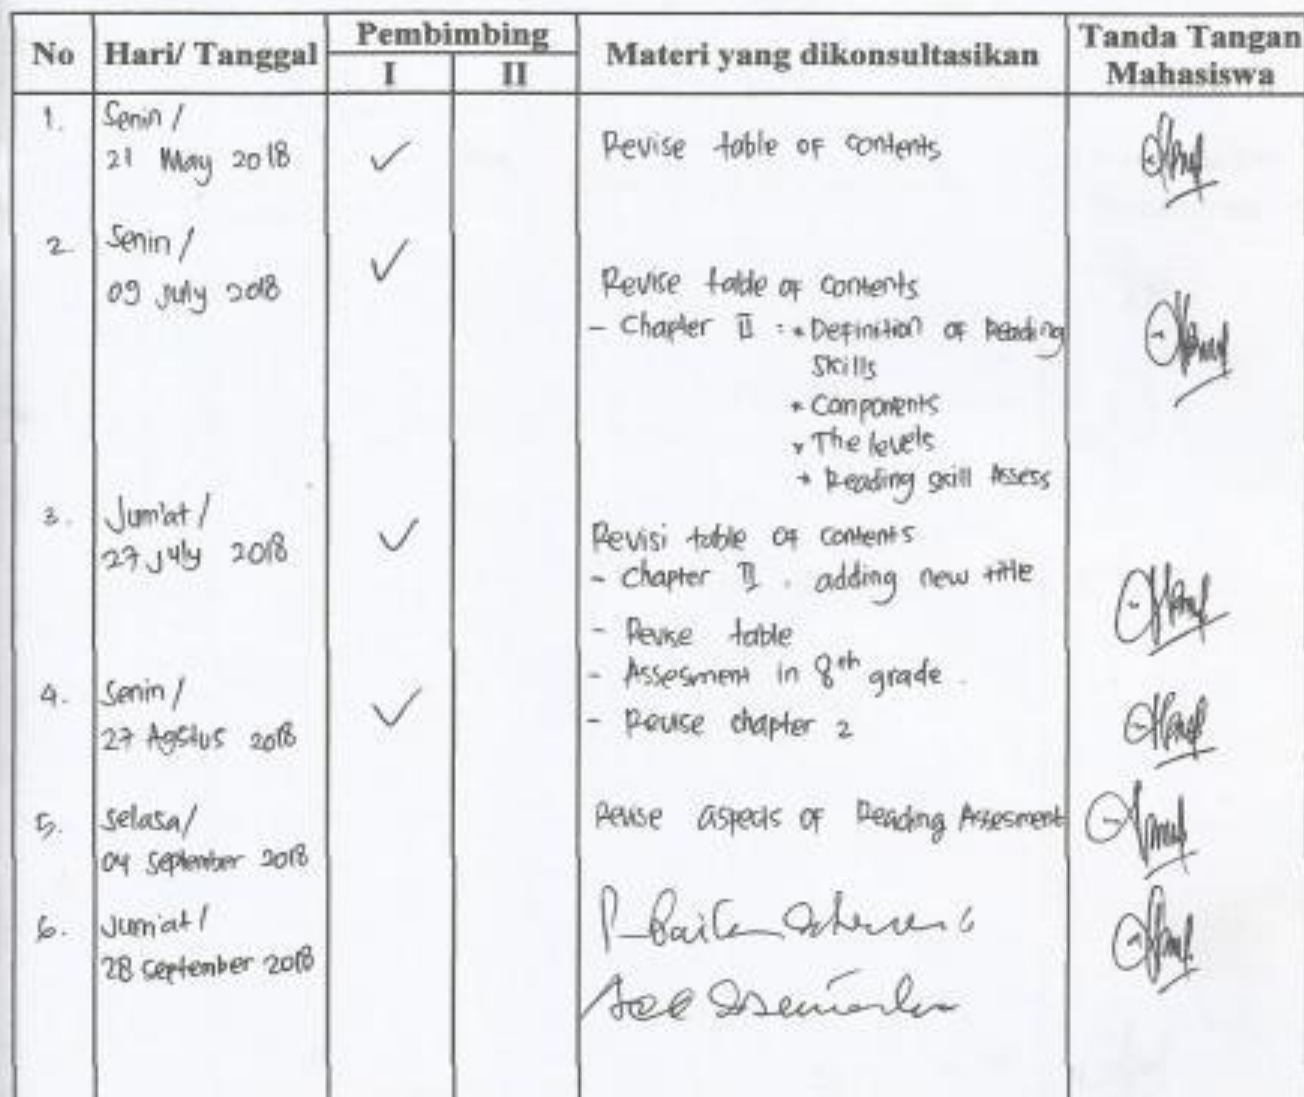 No Hari/ Tanggal Pembimbing Materi yang dikonsultasikan Tanda Tangan Mahasiswa
I II
1. Senin /
21 May 2018 ✓ Revise table of contents
2. Senin /
09 July 2018 ✓ Revise table of contents
- Chapter II : * Definition of Reading
Skills
* Components
* The levels
* Reading skill Assess
3. Jum'at /
27 July 2018 ✓ Revisi table of contents
- Chapter II . adding new title
- Revise table
- Assesment in 8th grade.
4. Senin /
27 Agstus 2018 ✓ - Revise chapter 2
5. Selasa/
04 September 2018 Revise aspects of Reading Assesment
6. Jum'at /
28 September 2018